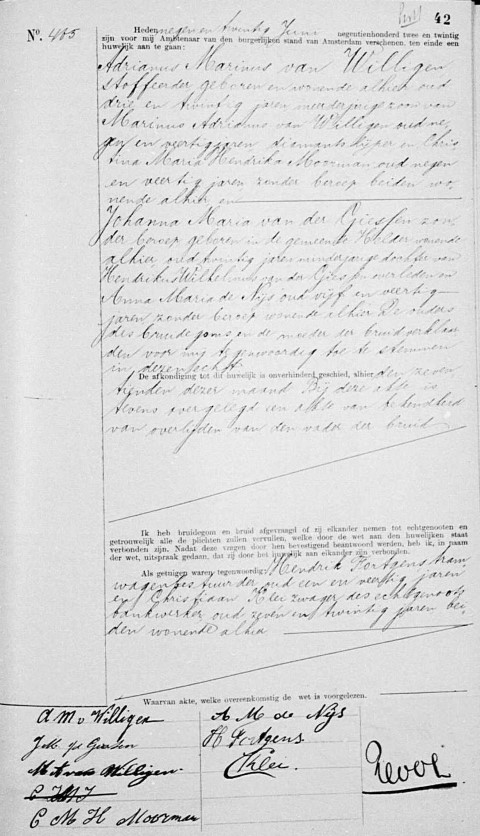 42
Nº. 485
Heden negen en twintig Juni negentienhonderd twee en twintig
zijn voor mij Ambtenaar van den burgerlijken stand van Amsterdam verschenen, ten einde een
huwelijk aan te gaan:
Adrianus Marinus van Willigen
stoffeerder geboren en wonende alhier oud
drie en twintig jaren meerderjarige zoon van
Marinus Adrianus van Willigen oud ne-
gen en veertig jaren diamantslijper en Chris-
tina Maria Hendrika Moorman oud negen
en veertig jaren zonder beroep beiden wo-
nende alhier en
Johanna Maria van der Giessen zon-
der beroep geboren in de gemeente Helder wonende
alhier oud twintig jaren minderjarige dochter van
Hendrikus Wilhelmus van der Giessen overleden en
Anna Maria de Nijs oud vijf en veertig
jaren zonder beroep wonende alhier De ouders
des bruidegoms en de moeder der bruid verklaar-
den voor mij tegenwoordig toe te stemmen
in dezen echt
De afkondiging tot dit huwelijk is onverhinderd geschied, alhier den zeven
tienden dezer maand Bij deze akte is
tevens overgelegd een akte van bekendheid
van overlijden van den vader der bruid
Ik heb bruidegom en bruid afgevraagd of zij elkander nemen tot echtgenooten en
getrouwelijk alle de plichten zullen vervullen, welke door de wet aan den huwelijken staat
verbonden zijn. Nadat deze vragen door hen bevestigend beantwoord werden, heb ik, in naam
der wet, uitspraak gedaan, dat zij door het huwelijk aan elkander zijn verbonden.
Als getuigen waren tegenwoordig: Hendrik Fortgens tram
wagenbestuurder oud een en veertig jaren
en Christiaan Klei zwager des echtgenoots
bankwerker oud zeven en twintig jaren bei-
den wonende alhier
Waarvan akte, welke overeenkomstig de wet is voorgelezen.
A. M. v Willigen
A M de Nijs
J. M. v d Giessen
H Fortgens
M A van Willigen
C Klei
C M H Moorman